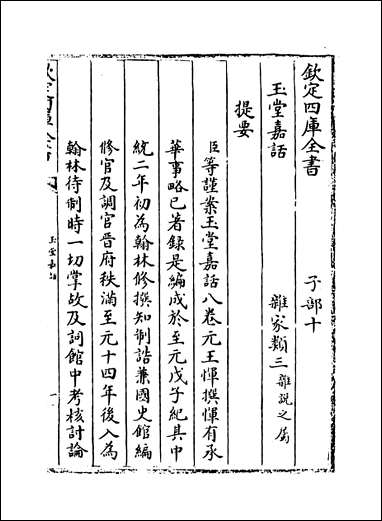 欽定四庫全書 子部十
玉堂嘉話 雜家類三雜説之屬
提要
臣等謹案玉堂嘉話八卷元王惲撰惲有承
華事略已著録是編成於至元戊子紀其中
統二年初為翰林修撰知制誥兼國史館編
修官及調官晉府秩滿至元十四年後入為
翰林待制時一切掌故及詞館中考核討論
玉堂嘉話